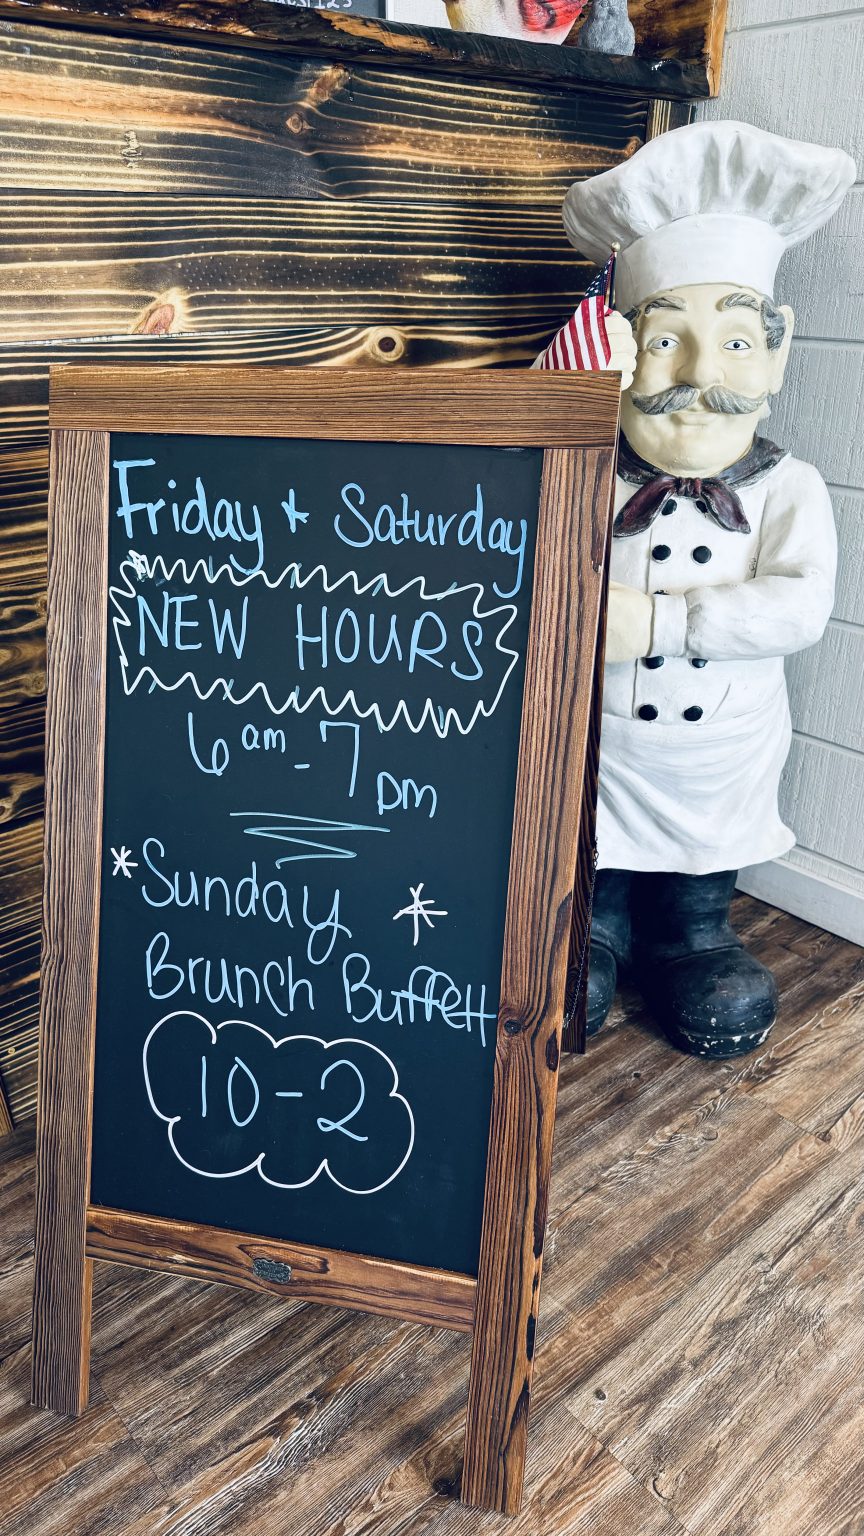 Friday + Saturday
NEW HOURS
6 am - 7 pm
* Sunday *
Brunch Buffett
10-2